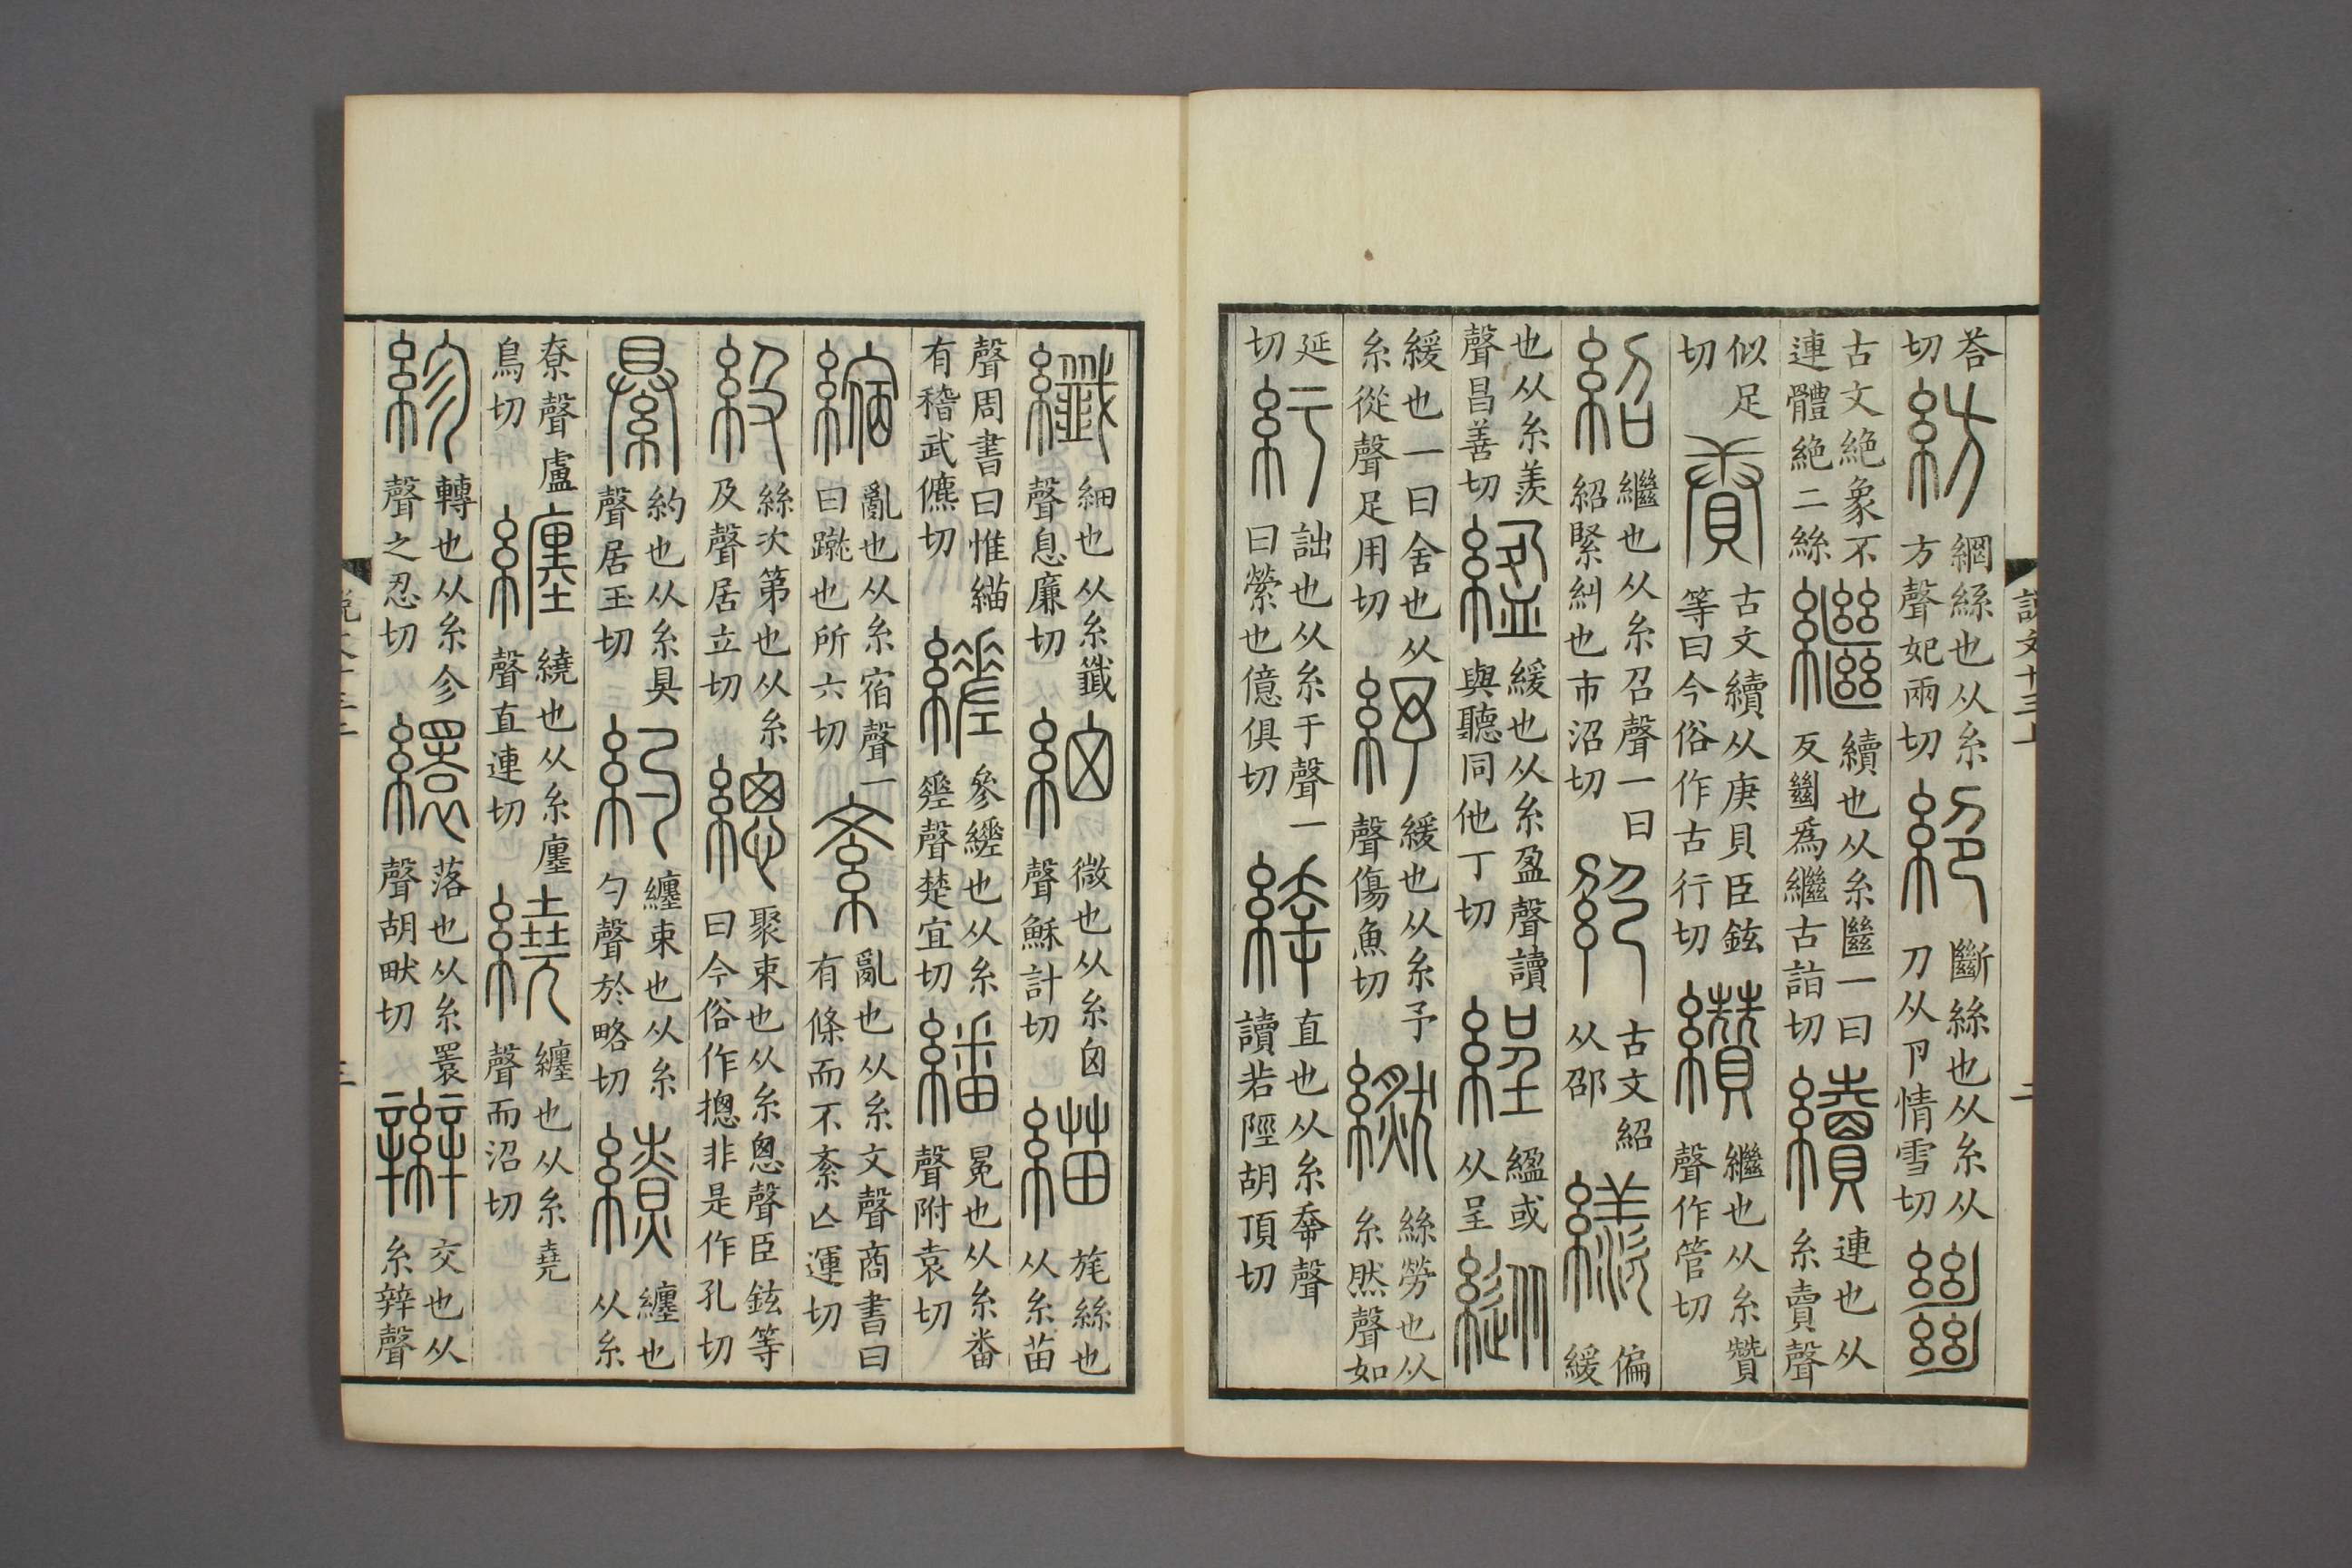 說文十三上
二
荅切 紡 網絲也从糸方聲妃兩切 絕 斷絲也从糸从刀从卪情雪切 𢇍
古文絶象不連體絶二絲 繼 續也从糸㡭一曰反𢇍爲繼古詣切 續 連也从糸賣聲
似足切 賡 古文續从庚貝臣鉉等曰今俗作古行切 纘 繼也从糸贊聲作管切
紹 繼也从糸召聲一曰紹緊糾也市沼切 綤 古文紹从邵 偏緩
也从糸羨聲昌善切 緩也从糸盈聲讀與聽同他丁切 或从呈 縱
緩也一曰舍也从糸從聲足用切 紓 緩也从糸予聲傷魚切 繎 絲勞也从糸然聲如
延切 紆 詘也从糸于聲一曰縈也億俱切 緈 直也从糸𡴘聲讀若陘胡頂切
纖 細也从糸韱聲息廉切 細 微也从糸囟聲穌計切 緢 旄絲也从糸苗
聲周書曰惟緢有稽武儦切 縒 參縒也从糸差聲楚宜切 繙 冕也从糸番聲附袁切
縮 亂也从糸宿聲一曰蹴也所六切 紊 亂也从糸文聲商書曰有條而不紊亾運切
級 絲次第也从糸及聲居立切 總 聚束也从糸悤聲臣鉉等曰今俗作摠非是作孔切
約也从糸具聲居玉切 約 纏束也从糸勺聲於略切 繚 纏也从糸
尞聲盧鳥切 纏 繞也从糸廛聲直連切 繞 纏也从糸堯聲而沼切
紾 轉也从糸㐱聲之忍切 繯 落也从糸睘聲胡畎切 辮 交也从糸辡聲
三